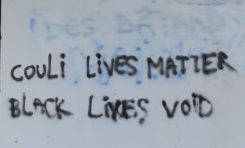 COULI LIVES MATTER
BLACK LIVES VOID